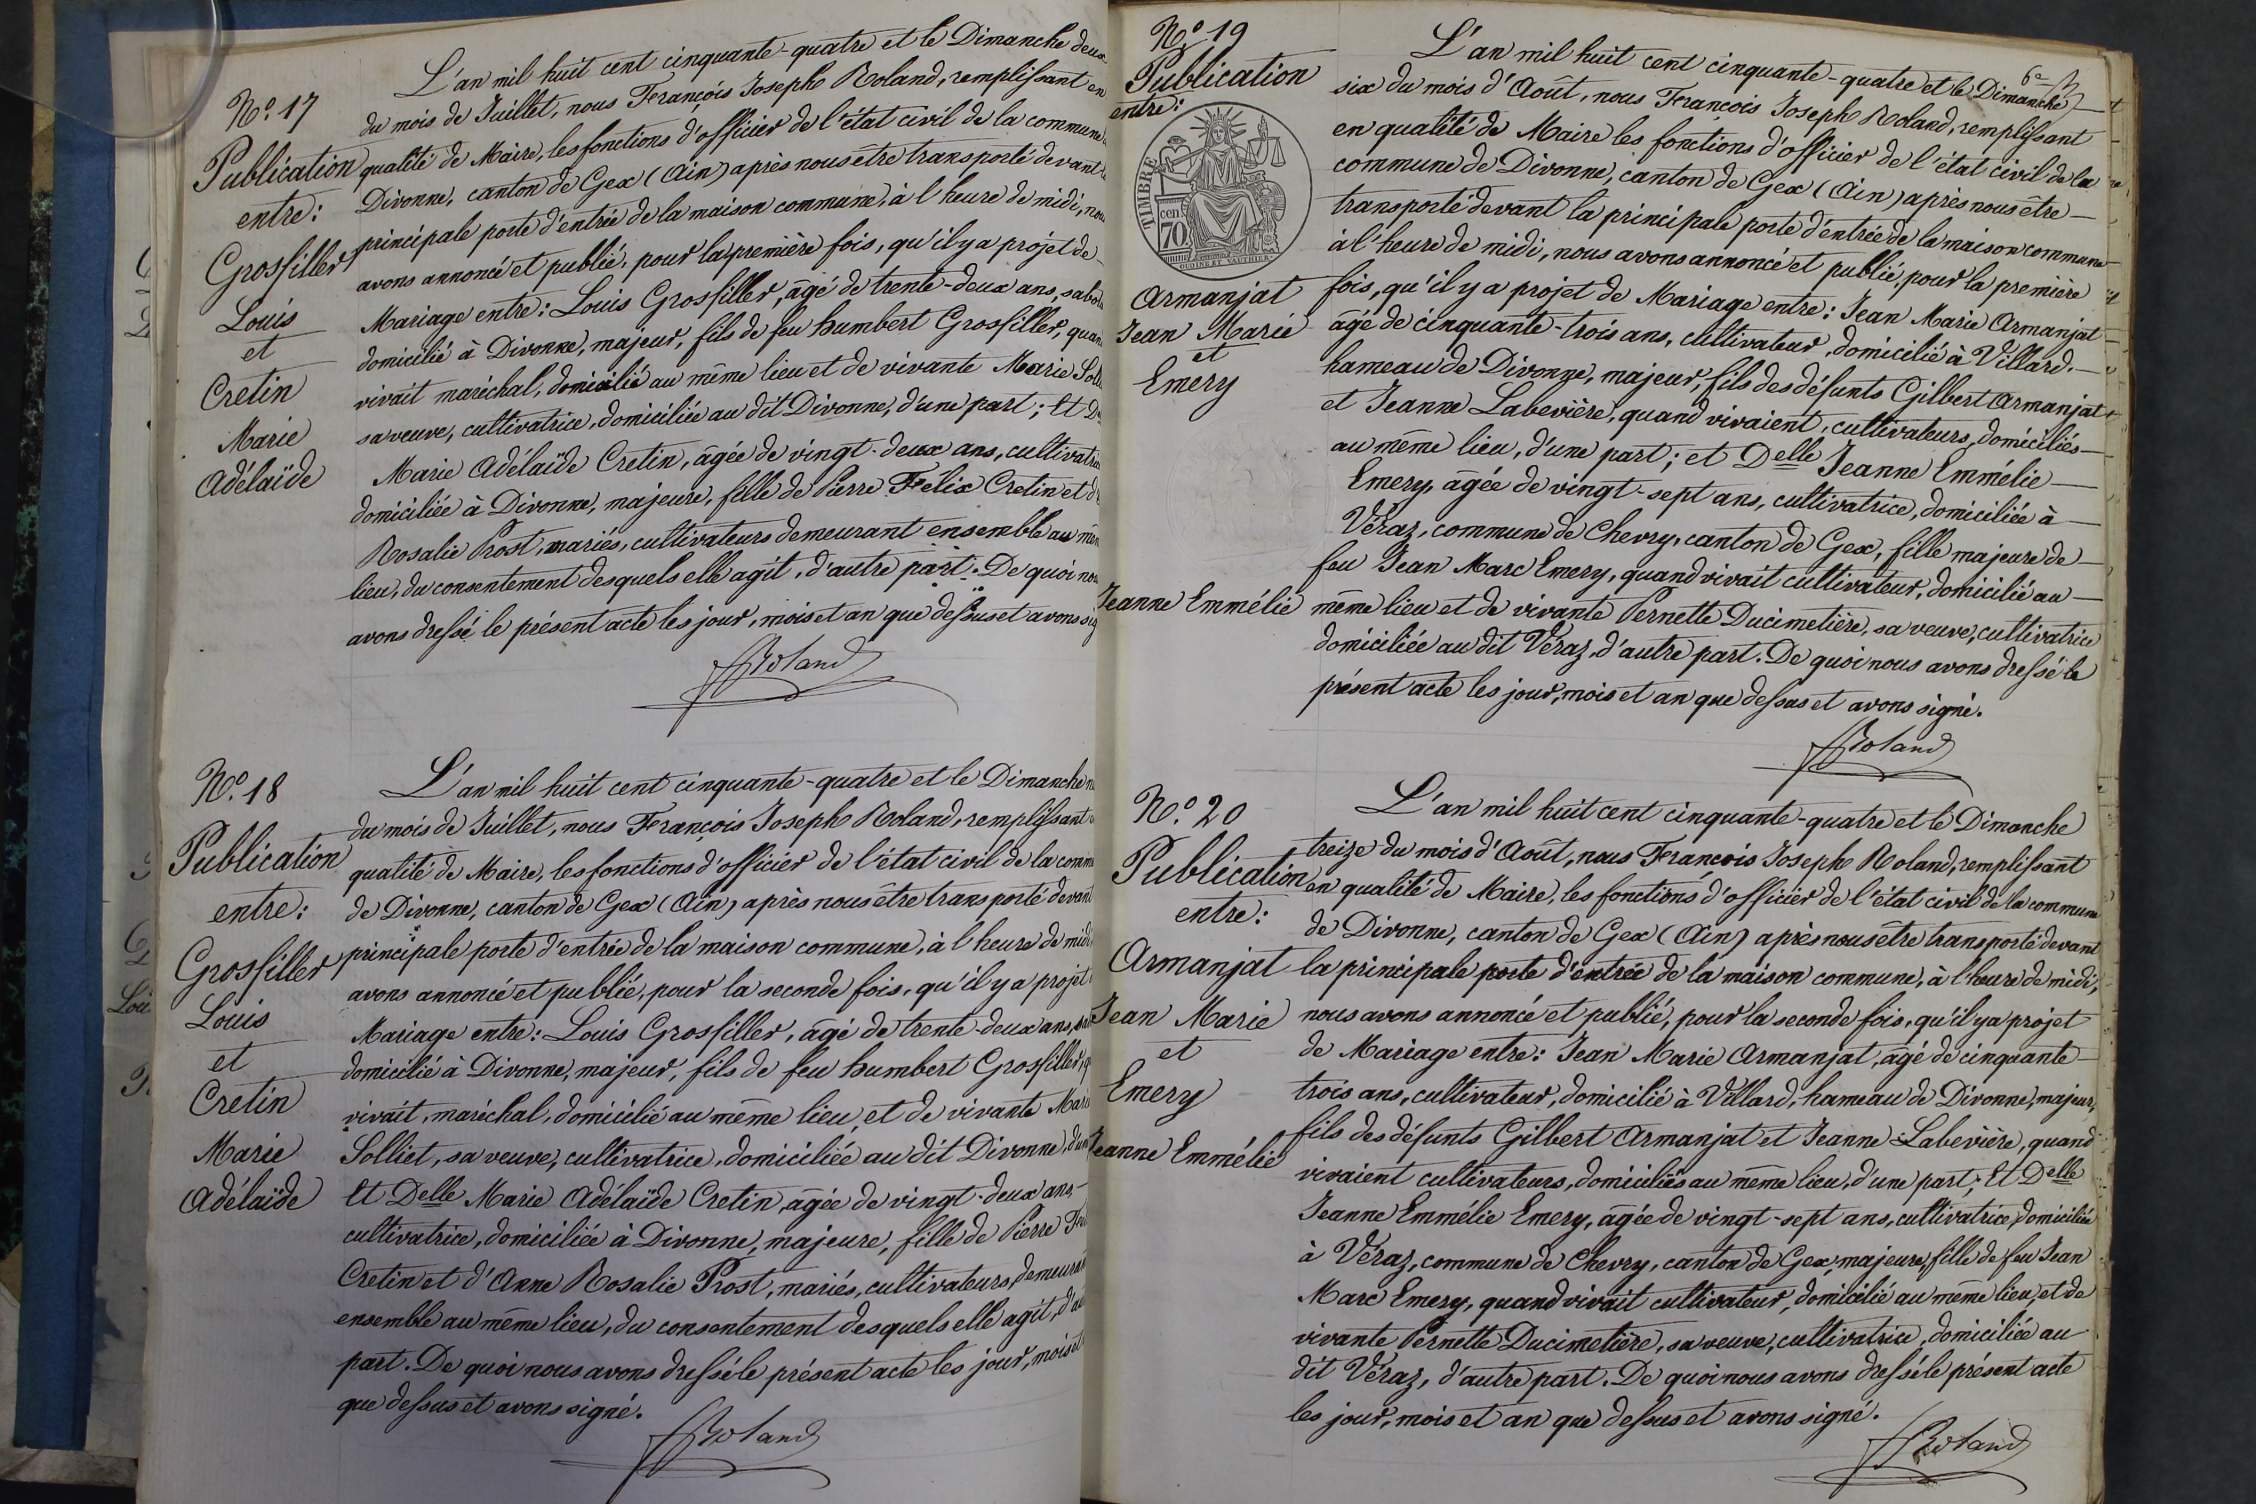 N.º 17
Publication
entre:
Grosfiller
Louis
et
Cretin
Marie
Adélaïde
L'an mil huit cent cinquante-quatre et le Dimanche deux
du mois de Juillet, nous François Joseph Roland, remplissant en
qualité de Maire, les fonctions d'officier de l'état civil de la commune
Divonne, canton de Gex (Ain) après nous être transporté devant
principale porte d'entrée de la maison commune, à l'heure de midi,
avons annoncé et publié, pour la première fois, qu'il y a projet de
Mariage entre: Louis Grosfiller, âgé de trente-deux ans,
domicilié à Divonne, majeur, fils de feu humbert Grosfiller, quan
vivait maréchal, domicilié au même lieu et de vivante Marie
sa veuve, cultivatrice, domiciliée au dit Divonne, d'une part; Et
Marie Adélaïde Cretin, âgée de vingt-deux ans,
domiciliée à Divonne, majeure, fille de Pierre Félix Cretin et
Rosalie Prost, mariés, cultivateurs demeurant ensemble au
lieu, du consentement desquels elle agit, d'autre part. De quoi
avons dressé le présent acte les jour, mois et an que dessus et avons
Roland
N.º 18
Publication
entre:
Grosfiller
Louis
et
Cretin
Marie
Adélaïde
L'an mil huit cent cinquante-quatre et le Dimanche
du mois de Juillet, nous François Joseph Roland, remplissant
qualité de Maire, les fonctions d'officier de l'état civil de la
de Divonne, canton de Gex (Ain) après nous être transporté devant
principale porte d'entrée de la maison commune, à l'heure de midi
avons annoncé et publié, pour la seconde fois, qu'il y a projet
Mariage entre: Louis Grosfiller, âgé de trente-deux ans,
domicilié à Divonne, majeur, fils de feu humbert Grosfiller,
vivait, maréchal, domicilié au même lieu, et de vivante
Solliet, sa veuve, cultivatrice, domiciliée au dit Divonne,
Et Delle Marie Adélaïde Cretin, âgée de vingt-deux ans,
cultivatrice, domiciliée à Divonne, majeure, fille de Pierre
Cretin et d'Anne Rosalie Prost, mariés, cultivateurs,
ensemble au même lieu, du consentement desquels elle agit,
part. De quoi nous avons dressé le présent acte les jour,
que dessus et avons signé.
Roland
N.º 19
Publication
entre:
TIMBRE
cen
70
OUDINE ET VAUTHIER
Armanjat
Jean Marie
et
Emery
Jeanne Emmélie
6e
L'an mil huit cent cinquante-quatre et le Dimanche
six du mois d'Août, nous François Joseph Roland, remplissant
en qualité de Maire les fonctions d'officier de l'état civil de la
commune de Divonne, canton de Gex (Ain) après nous être
transporté devant la principale porte d'entrée de la maison commune
à l'heure de midi, nous avons annoncé et publié, pour la première
fois, qu'il y a projet de Mariage entre: Jean Marie Armanjat
âgé de cinquante-trois ans, cultivateur, domicilié à Villard,
hameau de Divonne, majeur, fils des défunts Gilbert Armanjat
et Jeanne Labevière, quand vivaient, cultivateurs, domiciliés
au même lieu, d'une part; et Delle Jeanne Emmélie
Emery, âgée de vingt-sept ans, cultivatrice, domiciliée à
Véraz, commune de Chevry, canton de Gex, fille majeure de
feu Jean Marc Emery, quand vivait cultivateur, domicilié au
même lieu et de vivante Pernette Ducimetière, sa veuve, cultivatrice
domiciliée au dit Véraz, d'autre part. De quoi nous avons dressé le
présent acte les jour, mois et an que dessus et avons signé.
Roland
N.º 20
Publication
entre:
Armanjat
Jean Marie
et
Emery
Jeanne Emmélie
L'an mil huit cent cinquante-quatre et le Dimanche
treize du mois d'Août, nous François Joseph Roland, remplissant
en qualité de Maire, les fonctions d'officier de l'état civil de la commune
de Divonne, canton de Gex (Ain) après nous être transporté devant
la principale porte d'entrée de la maison commune, à l'heure de midi,
nous avons annoncé et publié, pour la seconde fois, qu'il y a projet
de Mariage entre: Jean Marie Armanjat, âgé de cinquante-
trois ans, cultivateur, domicilié à Villard, hameau de Divonne, majeur,
fils des défunts Gilbert Armanjat et Jeanne Labevière, quand
vivaient cultivateurs, domiciliés au même lieu, d'une part; Et Delle
Jeanne Emmélie Emery, âgée de vingt-sept ans, cultivatrice, domiciliée
à Véraz, commune de Chevry, canton de Gex, majeure, fille de feu Jean
Marc Emery, quand vivait cultivateur, domicilié au même lieu, et de
vivante Pernette Ducimetière, sa veuve, cultivatrice, domiciliée au
dit Véraz, d'autre part. De quoi nous avons dressé le présent acte
les jour, mois et an que dessus et avons signé.
Roland